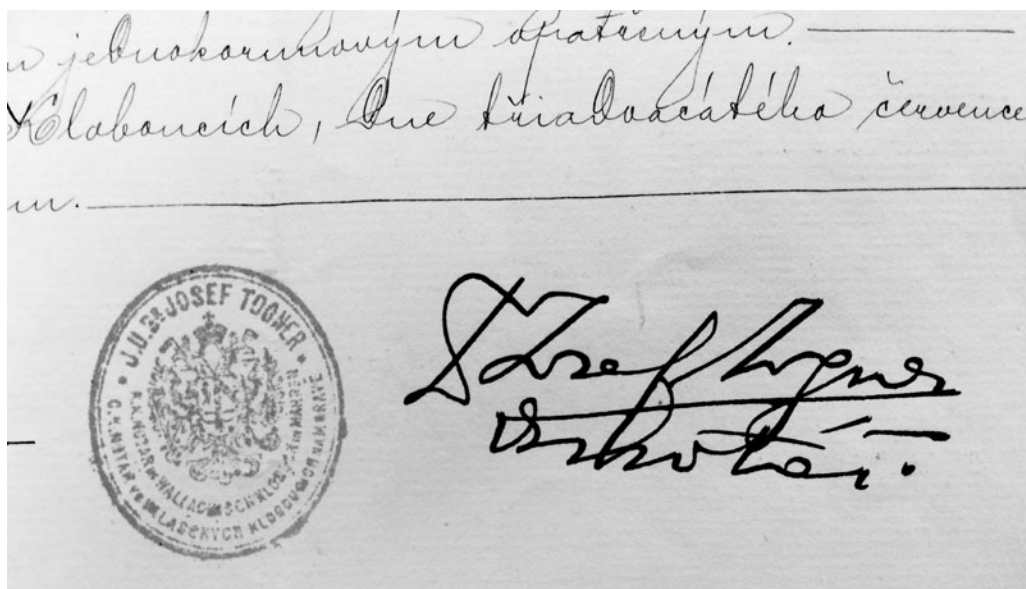 jednokorunovým opatřeným.
Kloboucích, dne třiadvacátého července
J.U.Dr JOSEF TOGNER
K.K. NOTAR IN WALLACHISCH KLOBOUK IN MÄHREN
C.K. NOTÁŘ VE VALAŠSKÝCH KLOBOUCÍCH NA MORAVĚ
Dr Josef Togner
notář.